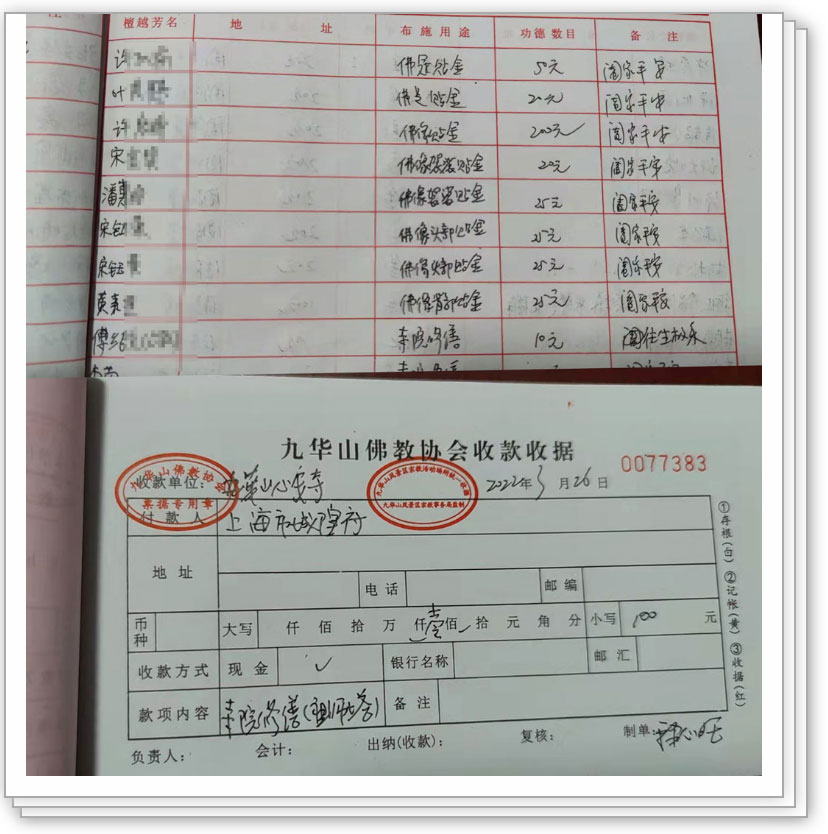 檀越芳名 地 址 布施用途 功德数目 备 注
许 佛足贴金 50元 阖家平安
叶 佛足贴金 20元 阖家平安
许 佛像贴金 200元 阖家平安
宋 佛像袈裟贴金 20元 阖家平安
潘 佛像袈裟贴金 25元 阖家平安
宋钰 佛像头部贴金 25元 阖家平安
宋钰 佛像头部贴金 25元 阖家平安
黄 佛像背部贴金 25元 阖家平安
傅 寺院修缮 10元 往生极乐
九华山佛教协会收款收据
九华山佛教协会
票据专用章
九华山风景区宗教活动场所统一收据
九华山风景区宗教事务局监制
0077383
收款单位: 心安寺 2022年3月26日
付款人 上海市城隍庙
地址
电话 邮编
币种 大写 仟佰拾万仟壹佰拾元角分 小写 100 元
收款方式 现金 ✓ 银行名称 邮汇
款项内容 寺院修缮(祖师塔) 备注
负责人: 会计: 出纳(收款): 复核: 制单:
①存根(白) ②记帐(黄) ③收据(红)